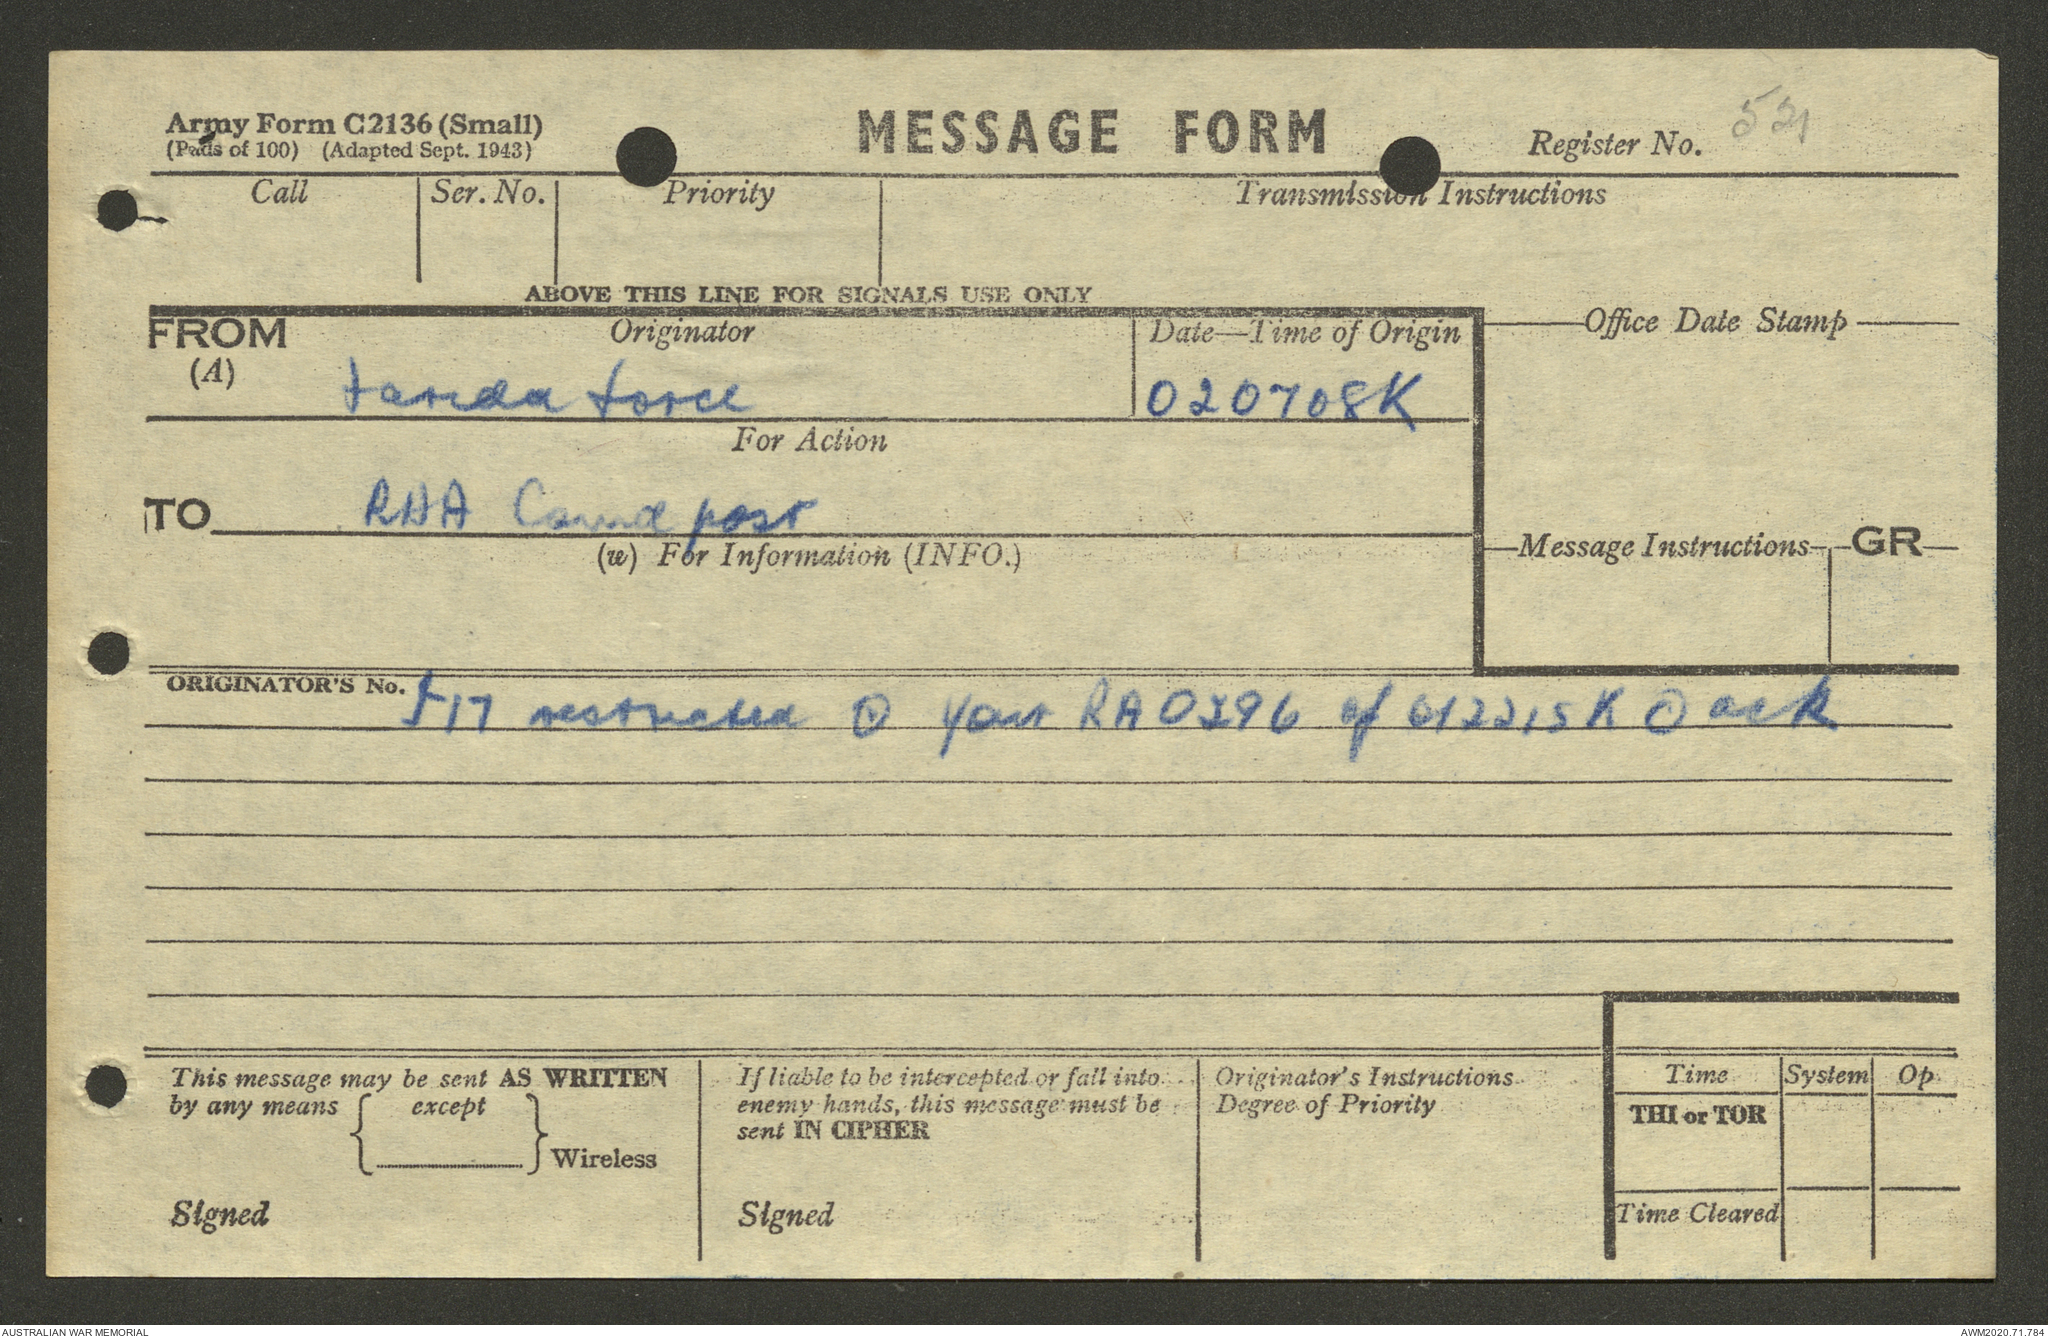 Army Form C2136 (Small)
(Pads of 100) (Adapted Sept. 1943)
MESSAGE FORM
Register No. 521
Call Ser. No. Priority Transmission Instructions
ABOVE THIS LINE FOR SIGNALS USE ONLY
FROM
(A)
Originator
Date—Time of Origin
Office Date Stamp
force
020708K
For Action
TO
post
(w) For Information (INFO.)
Message Instructions GR
ORIGINATOR'S No. restricted ⊙ your RA0396 of 012215K ⊙ ack
This message may be sent AS WRITTEN
by any means except
Wireless
Signed
If liable to be intercepted or fall into
enemy hands, this message must be
sent IN CIPHER
Signed
Originator's Instructions
Degree of Priority
Time System Op
THI or TOR
Time Cleared
AUSTRALIAN WAR MEMORIAL
AWM2020.71.784